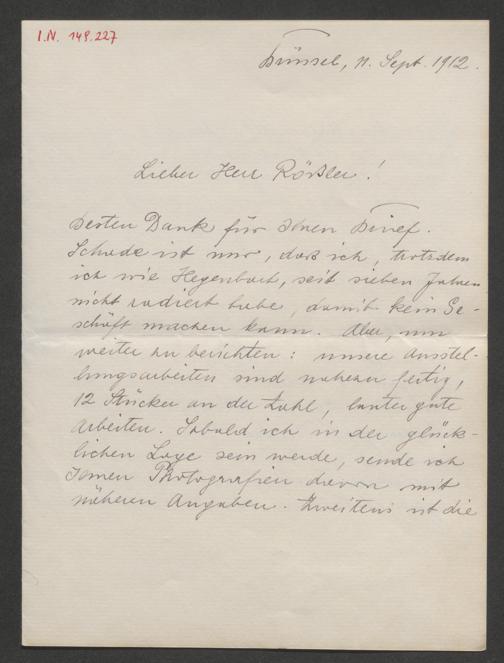 I.N. 149.227
Brüssel, 11. Sept. 1912.
Lieber Herr Rößler!
Besten Dank für Ihren Brief.
Schade ist nur, daß ich, trotzdem
ich wie Hegenbart, seit sieben Jahren
nicht radiert habe, damit kein Ge-
schäft machen kann. Aber, um
weiter zu berichten: unsere Ausstel-
lungsarbeiten sind nahezu fertig,
12 Stücke an der Zahl, lauter gute
Arbeiten. Sobald ich in der glück-
lichen Lage sein werde, sende ich
Ihnen Photografien davon mit
näheren Angaben. Zweitens ist die